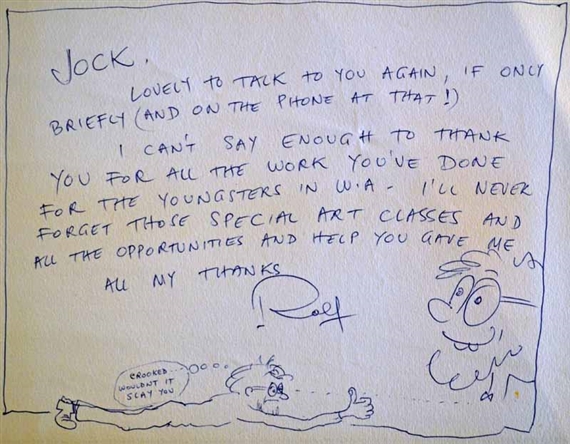 JOCK.
LOVELY TO TALK TO YOU AGAIN, IF ONLY
BRIEFLY (AND ON THE PHONE AT THAT!)
I CAN'T SAY ENOUGH TO THANK
YOU FOR ALL THE WORK YOU'VE DONE
FOR THE YOUNGSTERS IN W.A - I'LL NEVER
FORGET THOSE SPECIAL ART CLASSES AND
ALL THE OPPORTUNITIES AND HELP YOU GAVE ME
ALL MY THANKS
Rolf
CROOKED
WOULDN'T IT
SLAY YOU